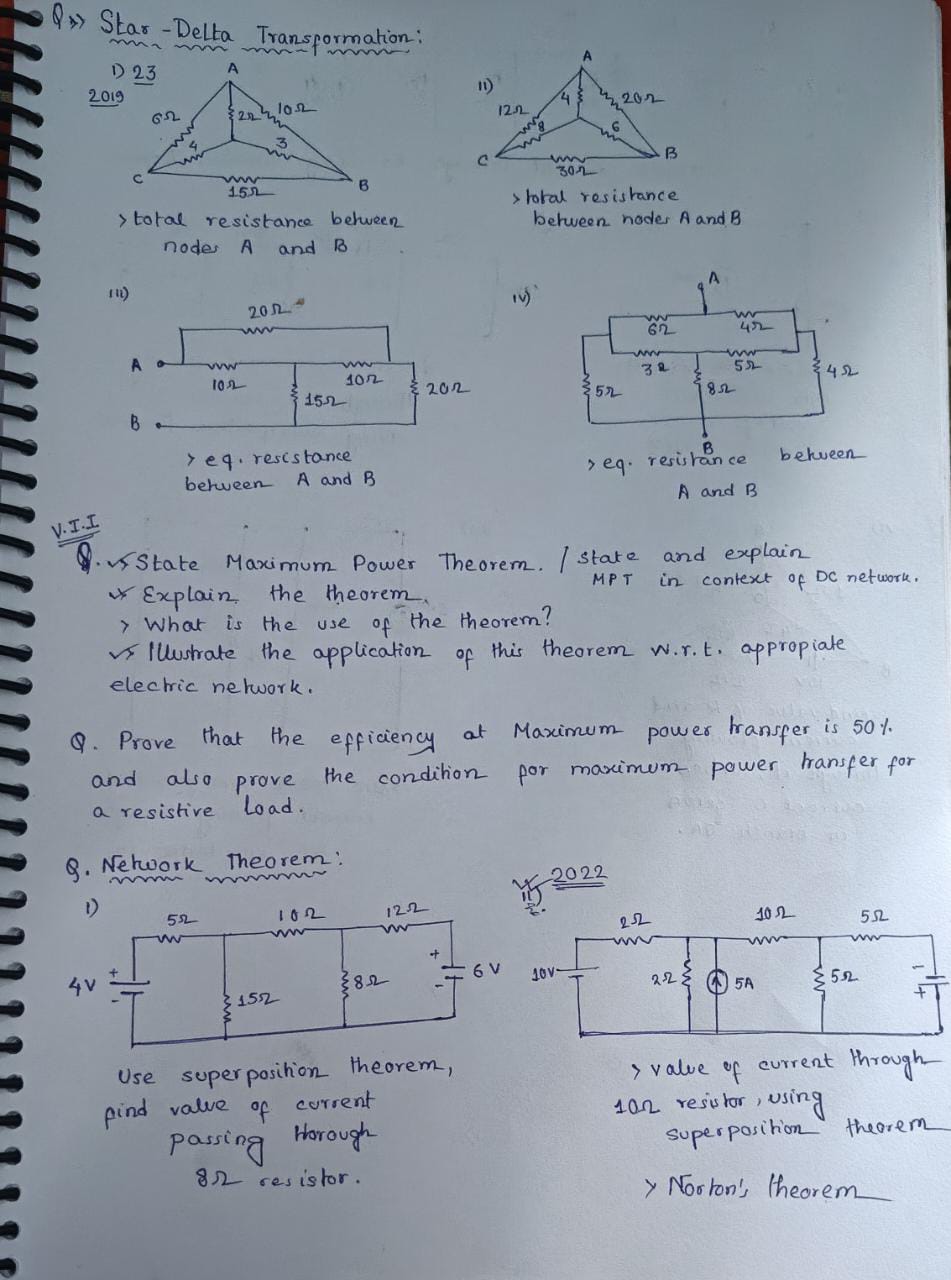 Q >> Star - Delta Transformation:
I) 23
2019
A
6Ω
2Ω
10Ω
4
3
C
15Ω
B
> total resistance between
nodes A and B
II)
A
12Ω
4
20Ω
8
6
C
30Ω
B
> total resistance
between nodes A and B
III)
20Ω
A
10Ω
10Ω
15Ω
20Ω
B
> eq. resistance
between A and B
IV)
A
6Ω
4Ω
3Ω
5Ω
5Ω
8Ω
4Ω
B
> eq. resistance between
A and B
V.I.I
Q. State Maximum Power Theorem. / state and explain
MPT in context of DC network.
Explain the theorem.
> What is the use of the theorem?
Illustrate the application of this theorem w.r.t. appropiate
electric network.
Q. Prove that the efficiency at Maximum power transfer is 50%
and also prove the condition for maximum power transfer for
a resistive load.
Q. Network Theorem:
I)
5Ω
10Ω
12Ω
4V
+
-
15Ω
8Ω
+
-
6V
Use superposition theorem,
find value of current
passing thorough
8Ω resistor.
II)
2022
2Ω
10Ω
5Ω
10V
2Ω
5A
5Ω
-
+
> value of current through
10Ω resistor, using
superposition theorem
> Norton's theorem